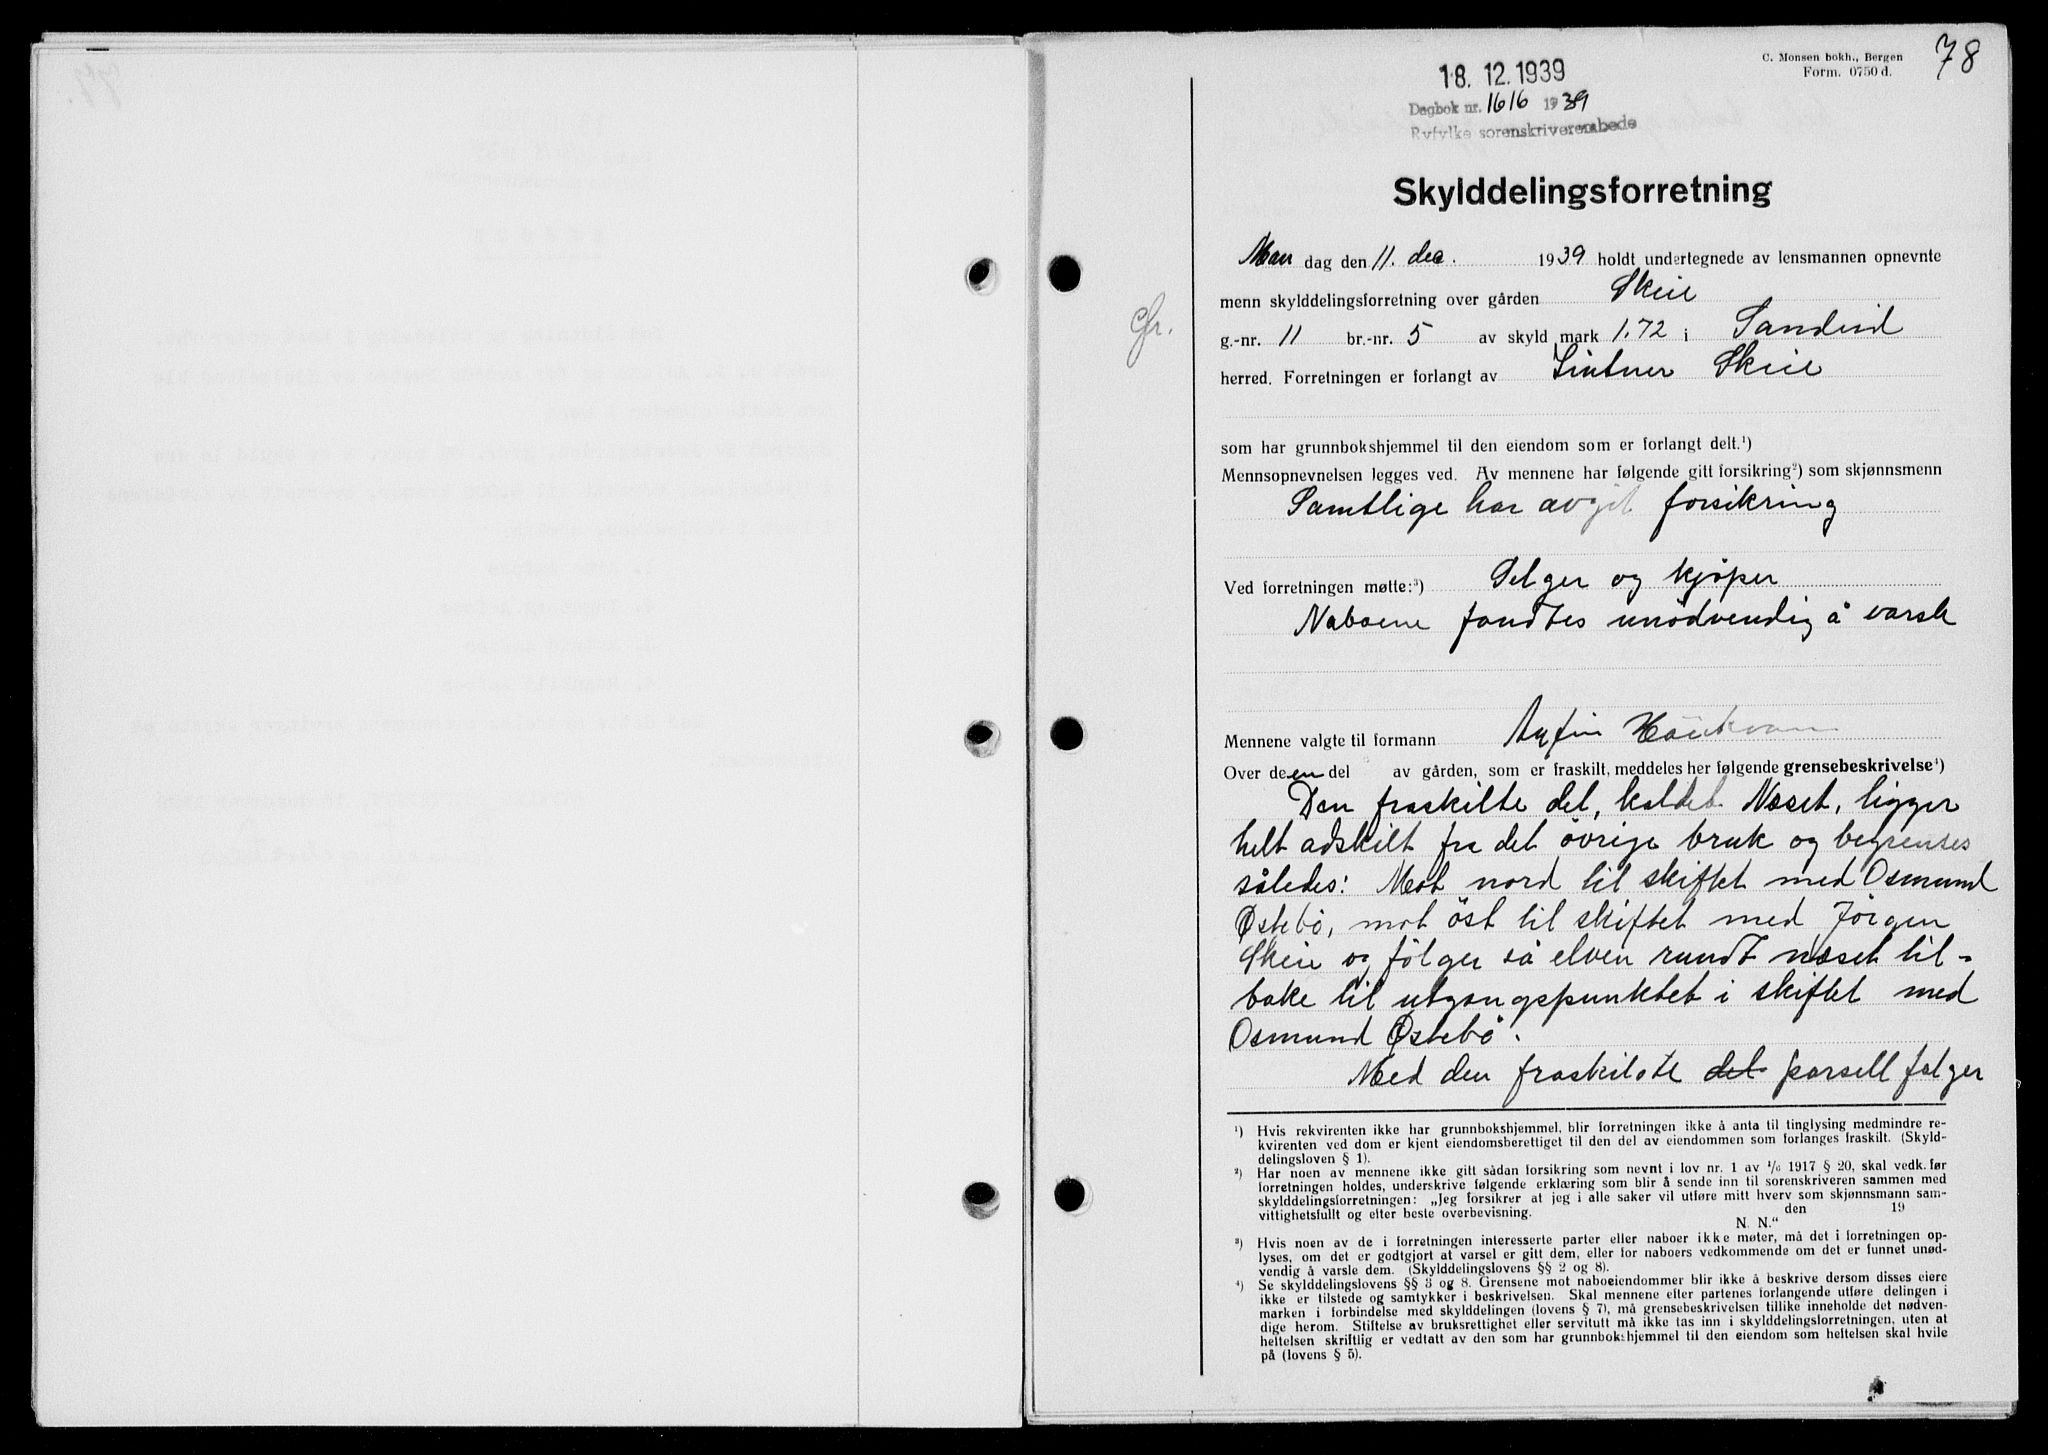 78
C. Monsen bokh., Bergen
Form. 0750 d.
18. 12. 1939
Dagbok nr. 1616 1939
Ryfylke sorenskriverembede
Skylddelingsforretning
Man dag den 11. des. 1939 holdt undertegnede av lensmannen opnevnte
menn skylddelingsforretning over gården Skeie
Cfr.
g.-nr. 11 br.-nr. 5 av skyld mark 1.72 i Sandeid
herred. Forretningen er forlangt av Skeie
som har grunnbokshjemmel til den eiendom som er forlangt delt.¹)
Mennsopnevnelsen legges ved. Av mennene har følgende gitt forsikring²) som skjønnsmenn
Samtlige har avgit forsikring
Ved forretningen møtte:³) Selger og kjöper
Naboene fandtes unödvendig å varsle
Mennene valgte til formann
Over de en del av gården, som er fraskilt, meddeles her følgende grensebeskrivelse⁴)
Den fraskilte del, kaldet Næset, ligger
helt adskilt fra det övrige bruk og begrenses
således: Mot nord til skiftet med Osmund
Østebö, mot öst til skiftet med Jörgen
Skeie og fölger så elven rundt næset til-
bake til utgangspunktet i skiftet med
Osmund Østebö.
Med den fraskilte del parsell følger
¹) Hvis rekvirenten ikke har grunnbokshjemmel, blir forretningen ikke å anta til tinglysing medmindre re-
kvirenten ved dom er kjent eiendomsberettiget til den del av eiendommen som forlanges fraskilt. (Skyld-
delingsloven § 1).
²) Har noen av mennene ikke gitt sådan forsikring som nevnt i lov nr. 1 av ¹/₆ 1917 § 20, skal vedk. før
forretningen holdes, underskrive følgende erklæring som blir å sende inn til sorenskriveren sammen med
skylddelingsforretningen: „Jeg forsikrer at jeg i alle saker vil utføre mitt hverv som skjønnsmann sam-
vittighetsfullt og efter beste overbevisning. den 19
N. N."
³) Hvis noen av de i forretningen interesserte parter eller naboer ikke møter, må det i forretningen op-
lyses, om det er godtgjort at varsel er gitt dem, eller for naboers vedkommende om det er funnet unød-
vendig å varsle dem. (Skylddelingslovens §§ 2 og 8).
⁴) Se skylddelingslovens §§ 3 og 8. Grensene mot naboeiendommer blir ikke å beskrive dersom disses eiere
ikke er tilstede og samtykker i beskrivelsen. Skal mennene efter partenes forlangende utføre delingen i
marken i forbindelse med skylddelingen (lovens § 7), må grensebeskrivelsen tillike inneholde det nødven-
dige herom. Stiftelse av bruksrettighet eller servitutt må ikke tas inn i skylddelingsforretningen, uten at
heftelsen skriftlig er vedtatt av den som har grunnbokshjemmel til den eiendom som heftelsen skal hvile
på (lovens § 5).